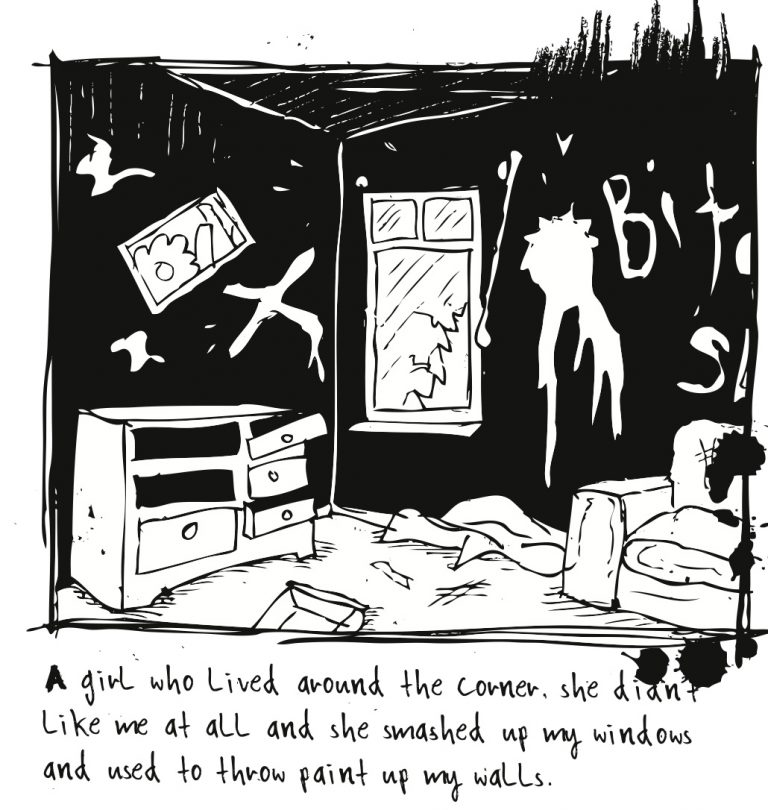 Bitc
SL
A girl who lived around the corner. she didn't
like me at all and she smashed up my windows
and used to throw paint up my walls.